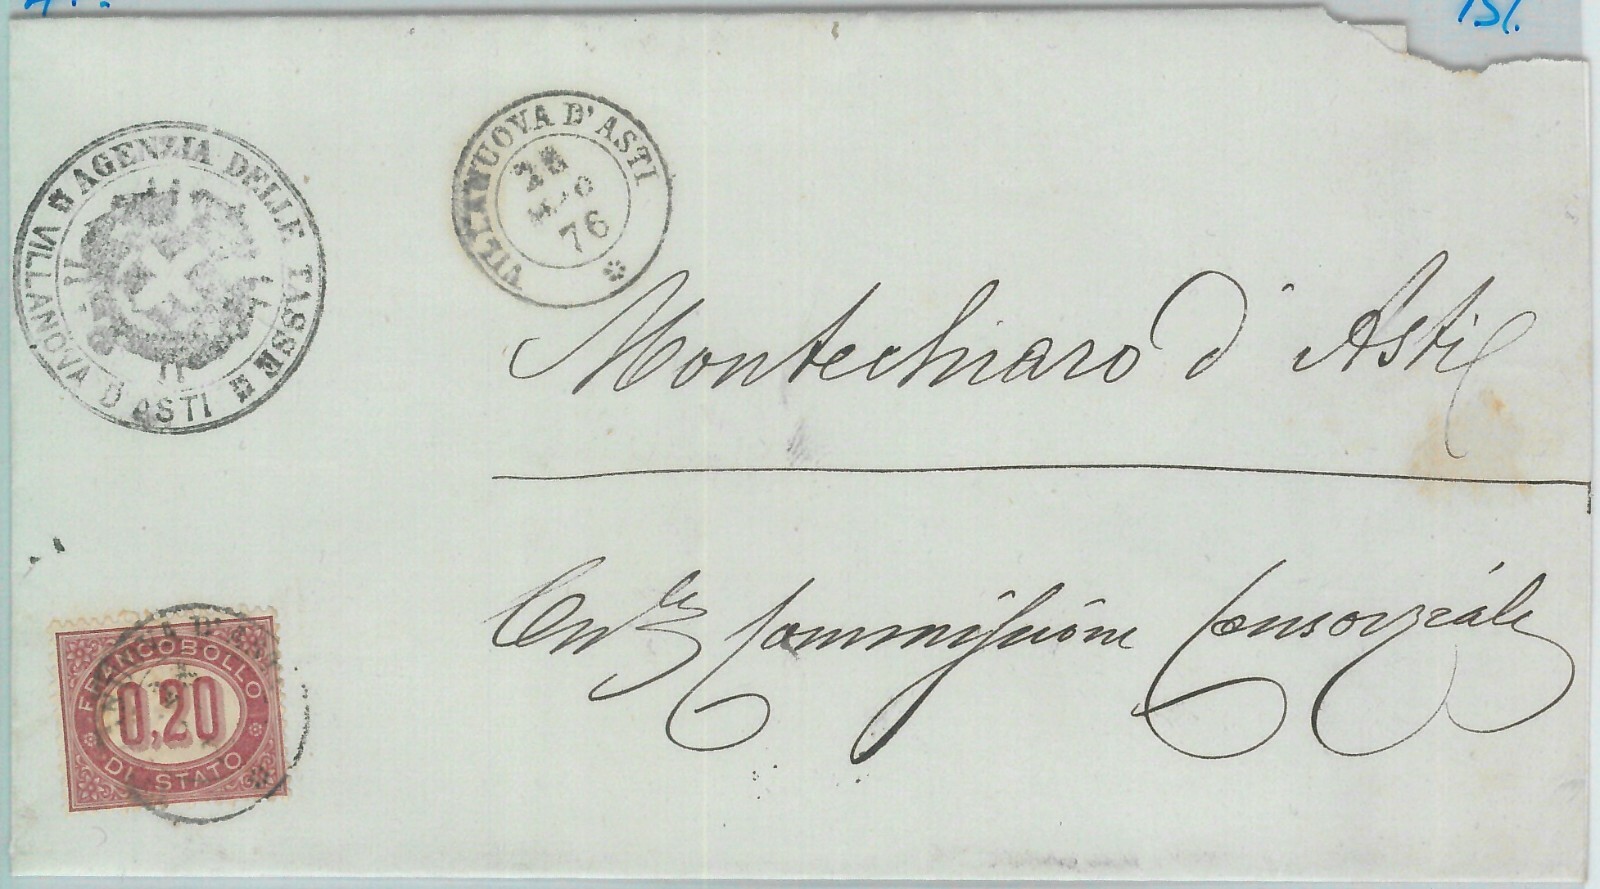 AGENZIA DELLE TASSE
VILLANOVA D'ASTI
VILLANUOVA D'ASTI
76
Montechiaro d'Asti
Commissione Consorziale
FRANCOBOLLO
0,20
DI STATO